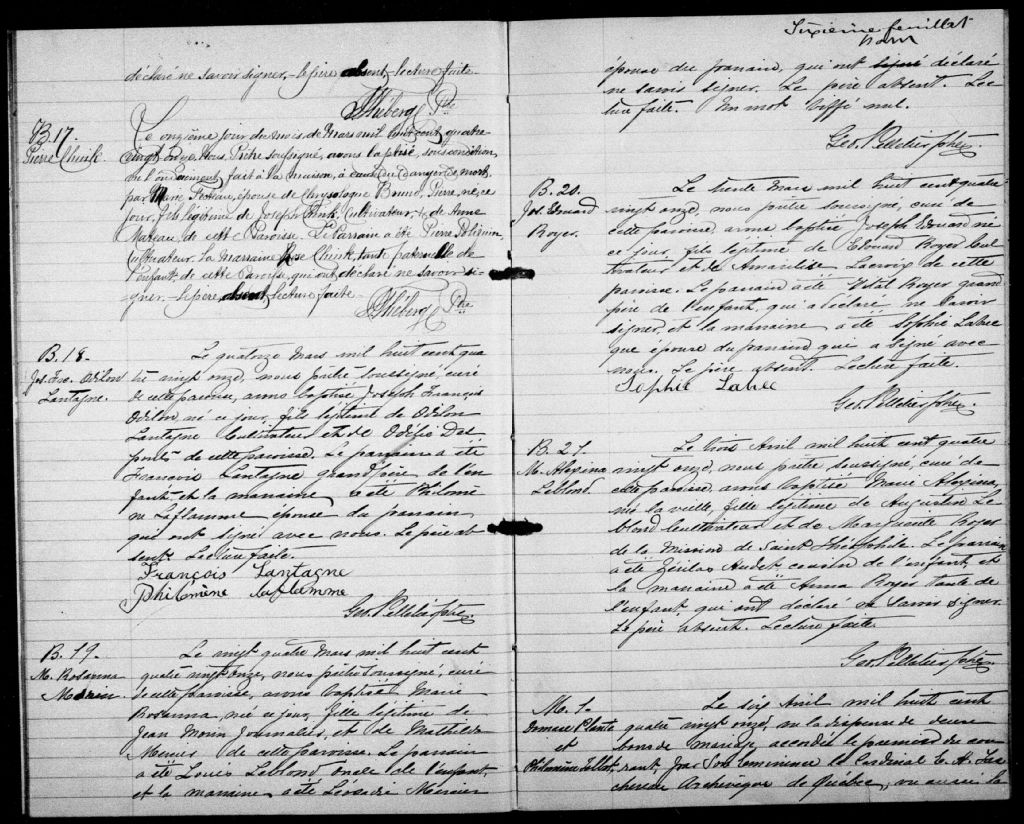 déclaré ne savoir signer, le père absent, lecture faite.
Ptre
B. 17.
Pierre Chink
Le onzième jour du mois de Mars mil huit cent quatre
vingt onze, Nous Prêtre soussigné, avons baptisé, sous condition,
vu l'ondoiement fait à la maison, à cause du danger de mort,
par épouse de Chrysologue Pierre, né, ce
jour, fils légitime de Joseph Cultivateur, & de Anne
Nadeau, de cette Paroisse. Le Parrain a été Pierre
Cultivateur. La Marraine Rose Chink, tante paternelle de
l'enfant, de cette Paroisse, qui ont déclaré ne savoir si-
gner. Le père absent, lecture faite.
Ptre
B. 18.
Jos. Frs. Odilon
Lantagne.
Le quatorze Mars mil huit cent qua
tre vingt onze, nous prêtre soussigné, curé
de cette paroisse, avons baptisé Joseph François
Odilon né ce jour, fils légitime de Odilon
Lantagne Cultivateur et de
de cette paroisse. Le parrain a été
François Lantagne grand père de l'en
fant, et la marraine a été Philomè
ne Laflamme épouse du parrain,
qui ont signé avec nous. Le père ab
sent. Lecture faite.
François Lantagne
Philomène laflamme
Geo. Pelletier Ptre
B. 19.
M. Rosanna
Morin
Le vingt quatre Mars mil huit cent
quatre vingt onze, nous prêtre soussigné, curé
de cette paroisse, avons baptisé Marie
Rosanna, née ce jour, fille légitime de
Jean Morin Journalier, et de Mathilde
Mercier de cette paroisse. Le parrain
a été Louis Leblond oncle de l'enfant,
et la marraine a été Mercier
Sixième feuillet
épouse du parrain, qui ont signé déclaré
ne savoir signer. Le père absent. Lec
ture faite. Un mot biffé nul.
Geo. Pelletier Ptre
B. 20.
Jos. Edouard
Royer.
Le trente Mars mil huit cent quatre
vingt onze, nous prêtre soussigné, curé de
cette paroisse, avons baptisé Joseph Edouard né
ce jour, fils légitime de Edouard Royer Cul
tivateur et de Lacroix de cette
paroisse. Le parrain a été Vital Royer grand
père de l'enfant, qui a déclaré ne savoir
signer, et la marraine a été Sophie Labec
que épouse du parrain qui a signé avec
nous. Le père absent. Lecture faite.
Sophie Labec
Geo. Pelletier Ptre
B. 21.
M. Alexina
Leblond.
Le trois Avril mil huit cent quatre
vingt onze, nous prêtre soussigné, curé de
cette paroisse, avons baptisé Marie Alexina,
née la veille, fille légitime de Augustin Le
blond Cultivateur et de Marguerite Royer
de la Mission de Saint Théophile. Le parrain
a été Audet cousin de l'enfant, et
la marraine a été Anna Royer tante de
l'enfant, qui ont déclaré ne savoir signer.
Le père absent. Lecture faite.
Geo. Pelletier Ptre
M. 1.
Plante
et
Philomène
Le six Avril mil huit cent
quatre vingt onze, vu la dispense de deux
bans de mariage, accordée le premier du cou
rant, par Son Eminence le Cardinal E. A. Tas
chereau Archevêque de Québec, vu aussi la